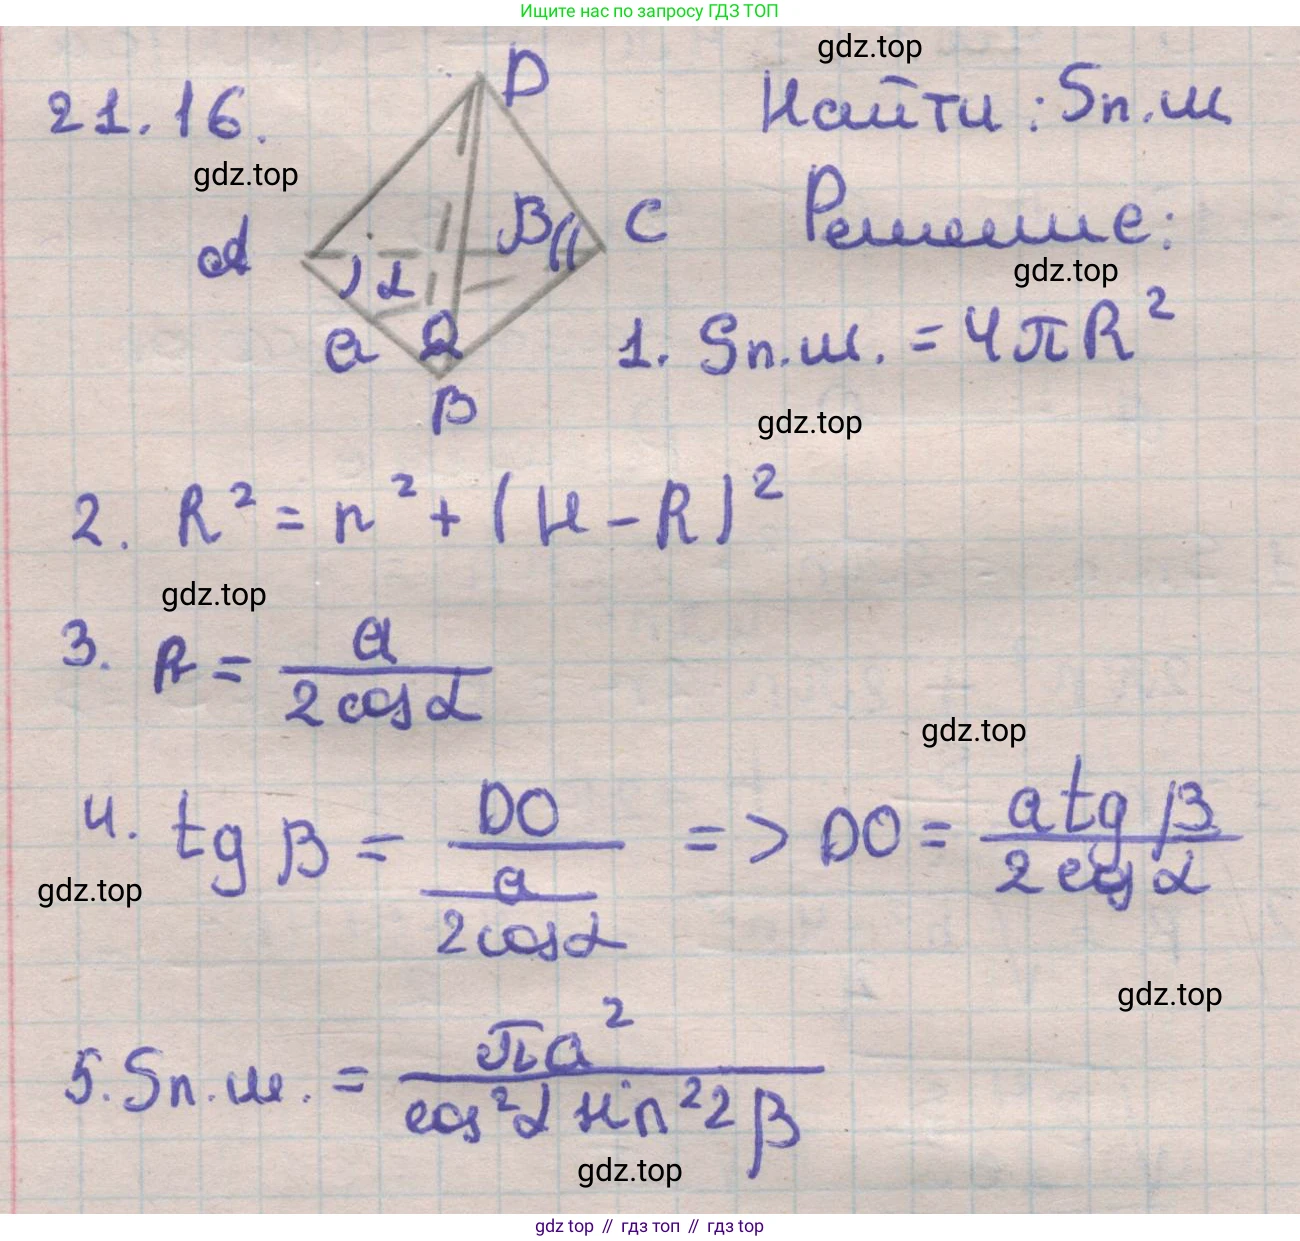 Ищите нас по запросу ГДЗ ТОП
gdz.top
21.16.
D
Найти: Sп.ш
gdz.top
A
B
C
Решение:
α
gdz.top
a
1. Sп.ш. = 4πR²
B
gdz.top
2. R² = r² + (H - R)²
gdz.top
3. R = a / 2cosα
gdz.top
4. tg β = DO / (a / 2cosα) => DO = a tg β / 2cosα
gdz.top
gdz.top
5. Sп.ш. = πa² / cos²α sin²2β
gdz.top
gdz top // гдз топ // гдз top